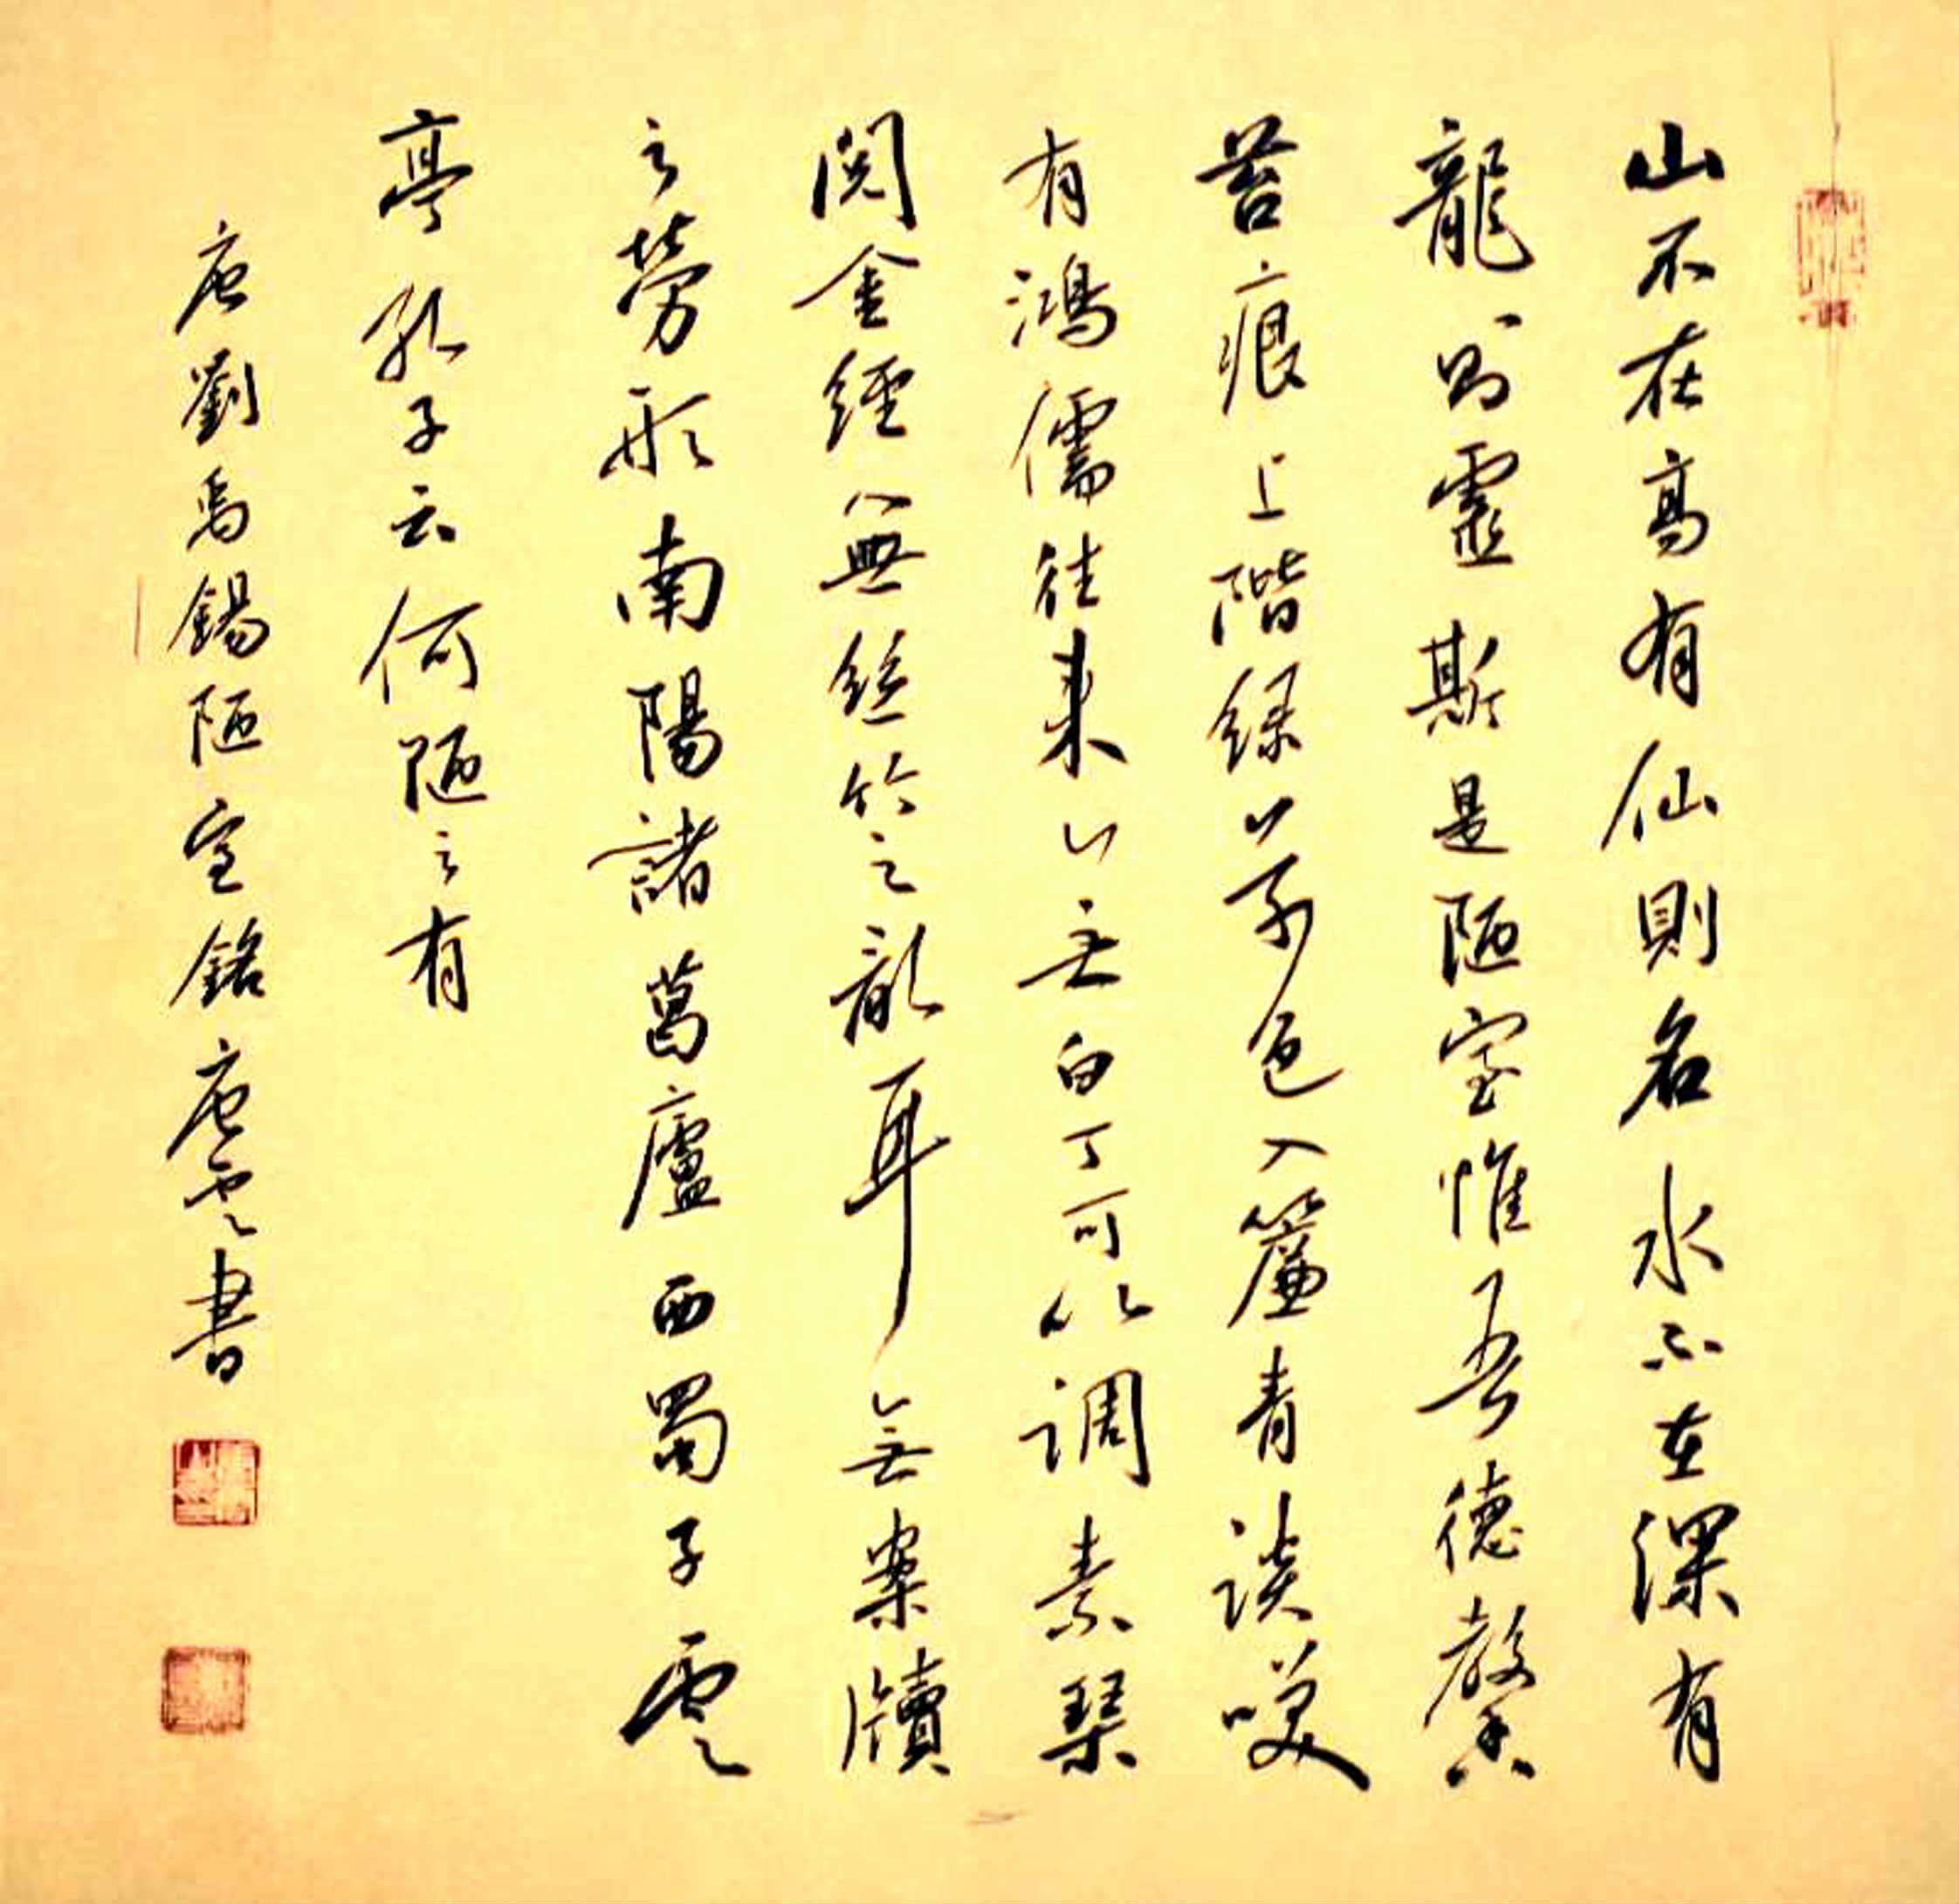 山不在高有仙則名水不在深有
龍則靈斯是陋室惟吾德馨
苔痕上階綠草色入簾青談咲
有鴻儒往來無白丁可以調素琴
閱金經無絲竹之亂耳無案牘
之勞形南陽諸葛廬西蜀子雲
亭孔子云何陋之有
唐劉禹錫陋室銘唐雲書